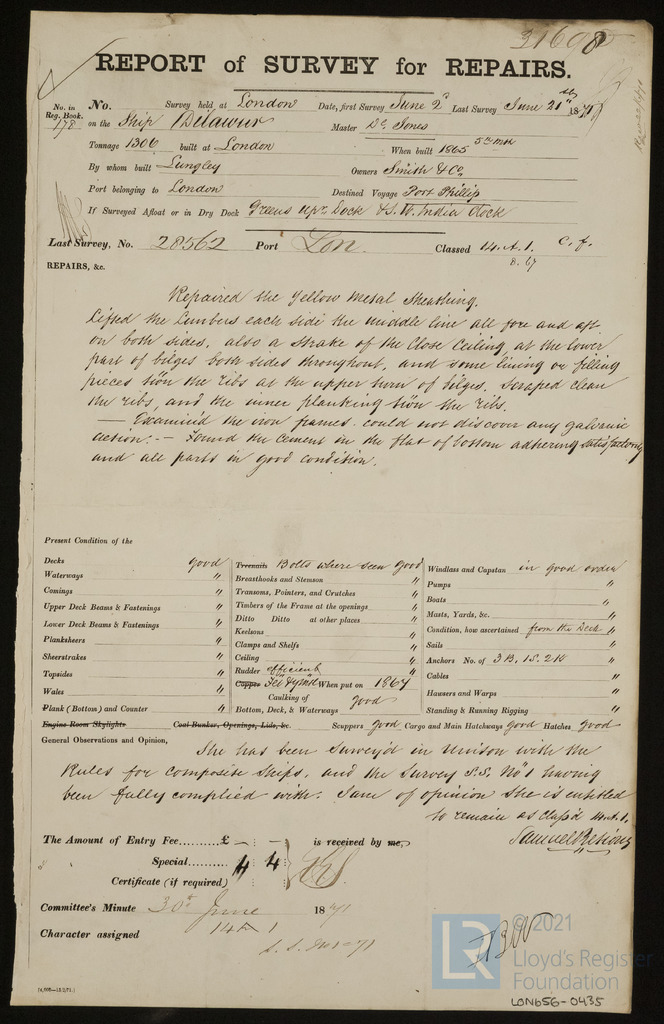 31698
REPORT of SURVEY for REPAIRS.
No. in Reg. Book. 178
No. Survey held at London Date, first Survey June 2d Last Survey June 21st 1871
on the Ship Delawur Master Dc. Jones
Tonnage 1306 built at London When built 1865 5th mth
By whom built Lungley Owners Smith & Co
Port belonging to London Destined Voyage Port Phillip
If Surveyed Afloat or in Dry Dock Greens upr. Dock & S. W. India Dock
Last Survey, No. 28562 Port Lon. Classed 14 A.1. C.F.
8.67
REPAIRS, &c.
Repaired the Yellow Metal Sheathing.
Lifted the Limbers each side the middle line all fore and aft
on both sides, also a strake of the Close Ceiling, at the lower
part of bilges both sides throughout, and some lining or filling
pieces tw̄n the ribs at the upper turn of bilges. Scraped clean
the ribs, and the inner planking tw̄n the ribs.
— Examin'd the iron frames. could not discover any galvanic
action. — Found the cement in the flat of bottom adhering satisfactory
and all parts in good condition.
Present Condition of the
Decks good
Waterways "
Comings "
Upper Deck Beams & Fastenings "
Lower Deck Beams & Fastenings "
Planksheers "
Sheerstrakes "
Topsides "
Wales "
Plank (Bottom) and Counter "
Engine Room Skylights Coal Bunker, Openings, Lids, &c.
Treenails Bolts where seen good
Breasthooks and Stemson "
Transoms, Pointers, and Crutches "
Timbers of the Frame at the openings "
Ditto Ditto at other places "
Keelsons "
Clamps and Shelfs "
Ceiling "
Rudder efficient
Copper When put on 1867
Caulking of
Bottom, Deck, & Waterways good
Windlass and Capstan in good order
Pumps "
Boats "
Masts, Yards, &c. "
Condition, how ascertained from the Deck "
Sails "
Anchors No. of 3B. 1S. 2K "
Cables "
Hawsers and Warps "
Standing & Running Rigging "
Scuppers good Cargo and Main Hatchways good Hatches good
General Observations and Opinion,
She has been survey'd in unison with the
Rules for composite ships, and the Survey S.S. No 1 having
been fully complied with. I am of opinion she is entitled
to remain as Class'd 14 A.1.
Samuel
The Amount of Entry Fee..........£ — : — : is received by me,
Special......... 4 : 4
Certificate (if required)
Committee's Minute 30th June 1871
Character assigned 14 A 1
S. S. No 1-71
© 2021
LR
Lloyd's Register
Foundation
LON656-0435